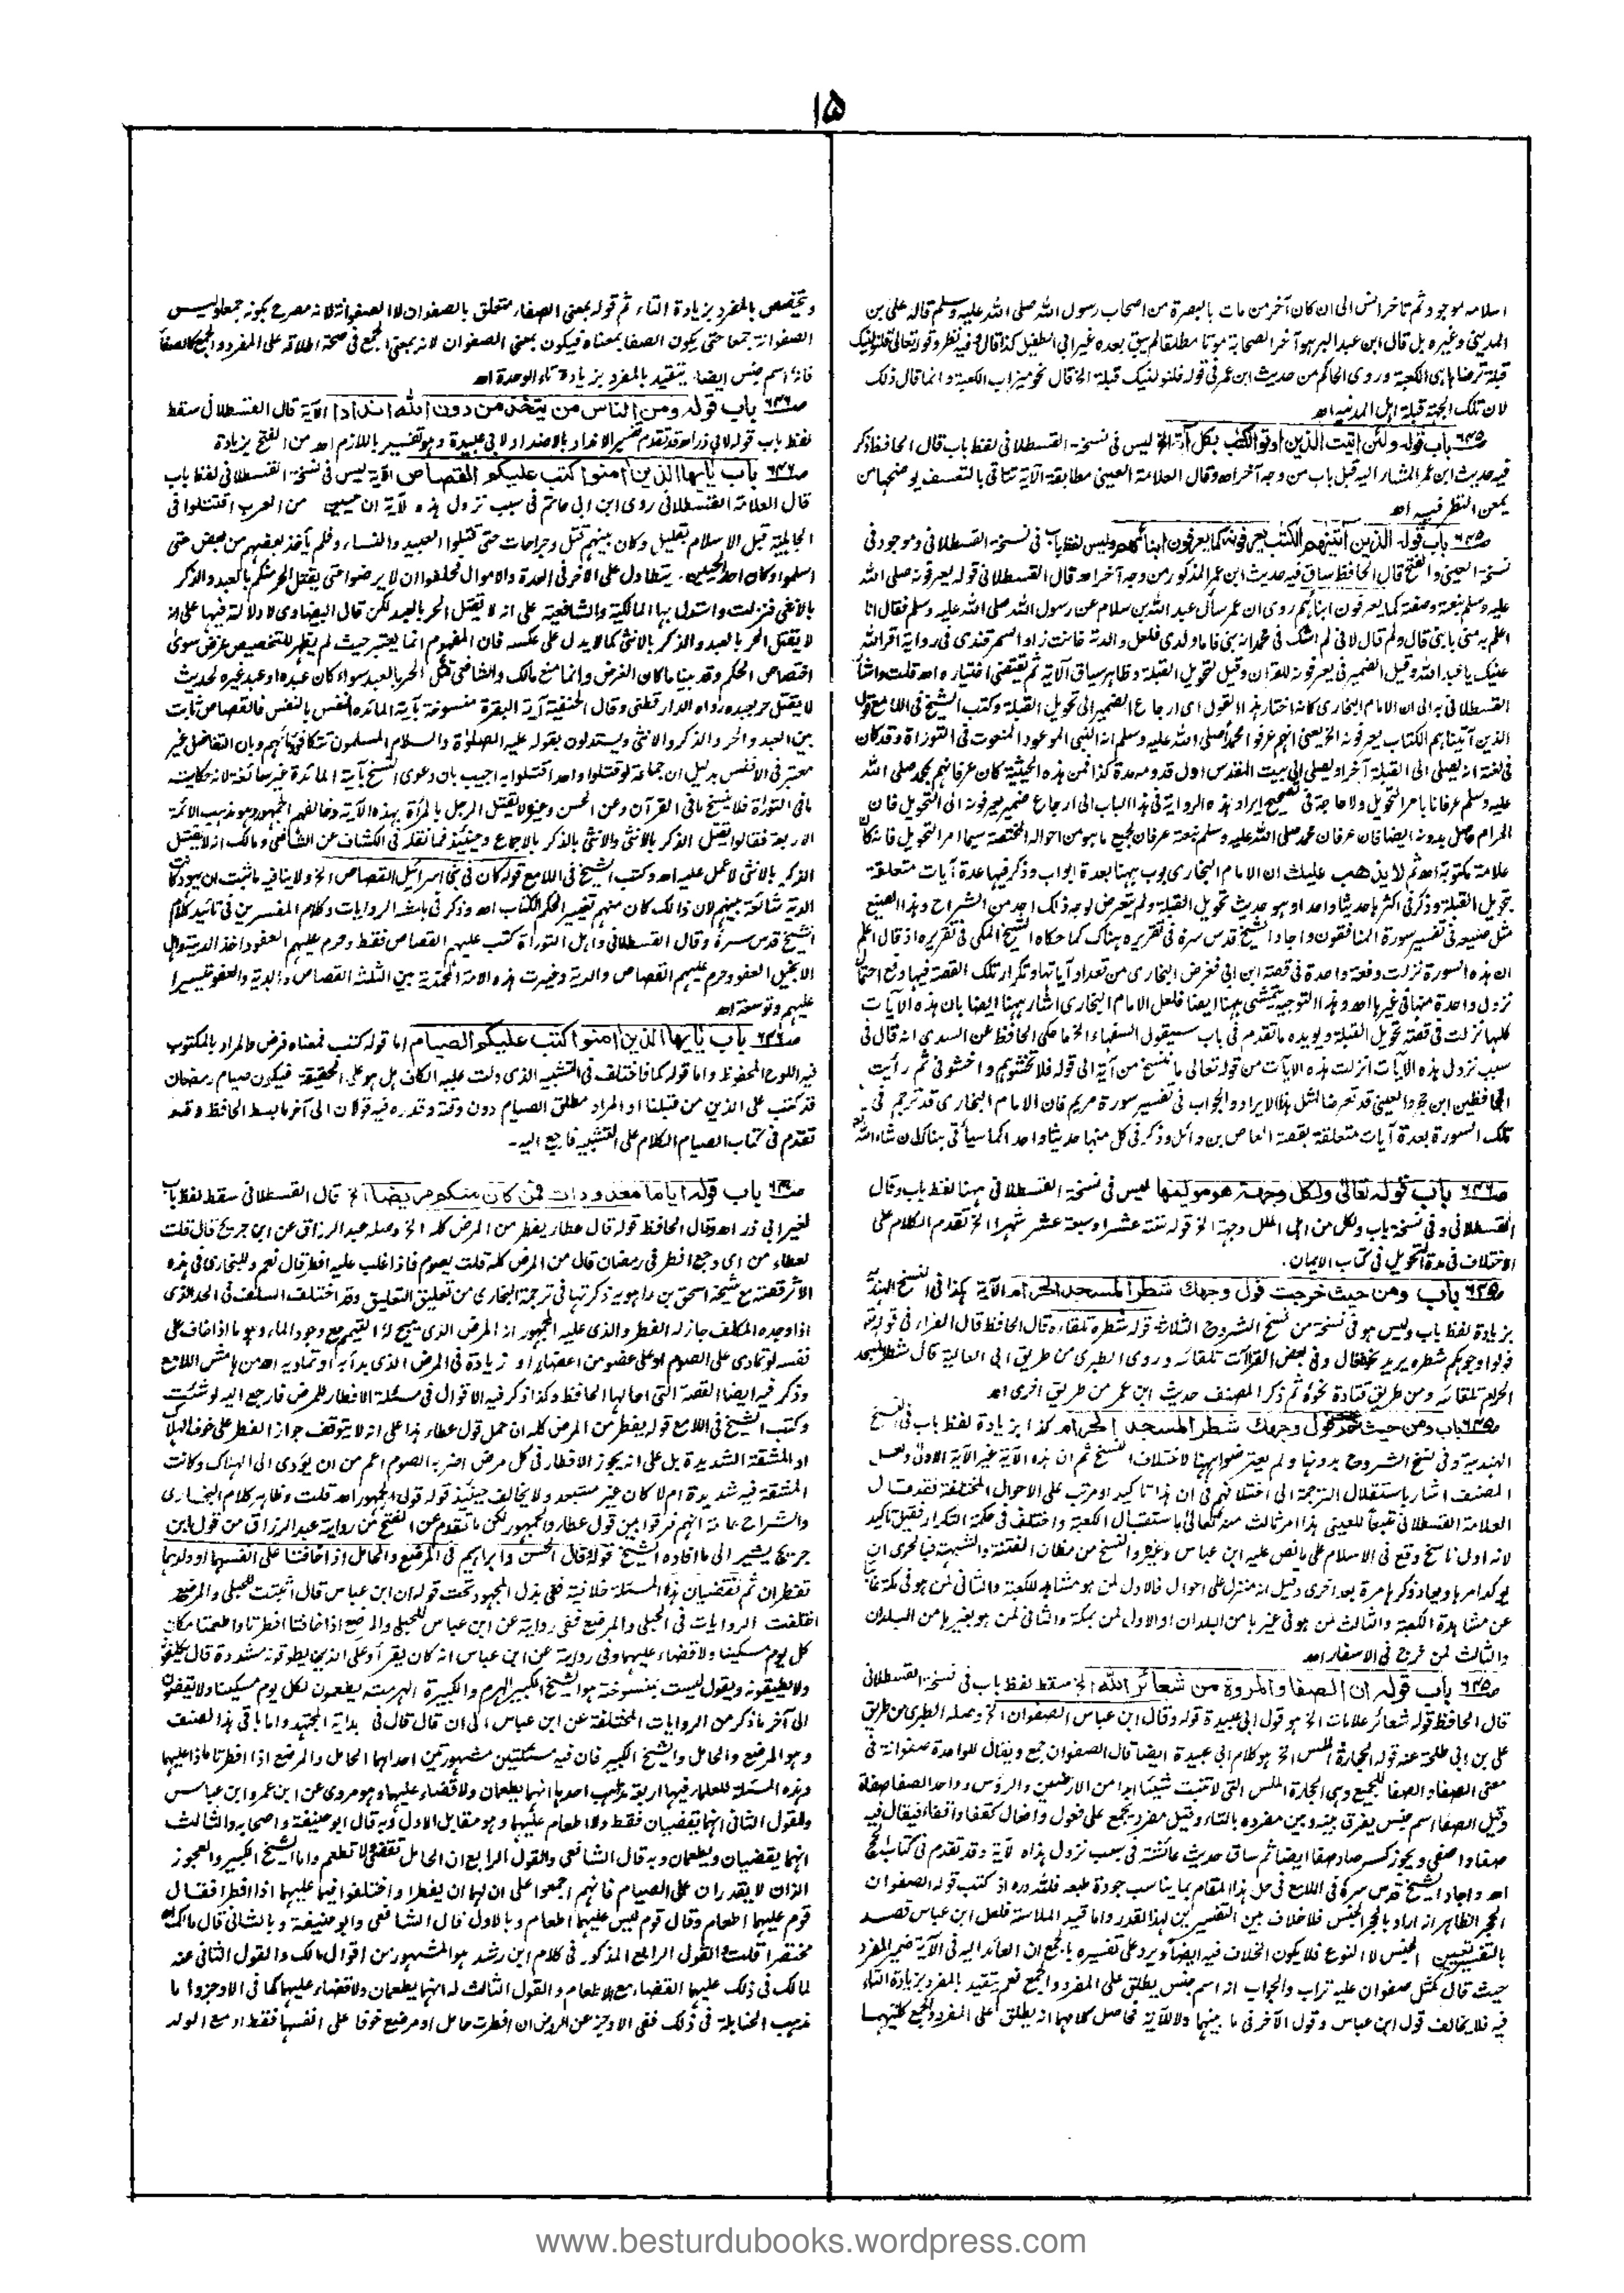 ۱۵
اسلامه موجود ثم تاخر انس الى ان كان آخر من مات بالبصرة من اصحاب رسول الله صلى الله عليه وسلم قاله على بن
المدينى وغيره بل قال ابن عبد البر هو آخر الصحابة موتا مطلقا لم يبق بعده غير ابى الطفيل كذا قال وفيه نظر وقوله تعالى فلنولينك
قبلة ترضاها هى الكعبة وروى الحاكم من حديث ابن عمر فى قوله فلنولينك قبلة الخ قال نحو ميزاب الكعبة وانما قال ذلك
لان تلك الجهة قبلة اهل المدينة اه
باب قوله ولئن اتيت الذين اوتوا الكتب بكل آية الخ ليس فى نسخة القسطلانى لفظ باب قال الحافظ ذكر
فيه حديث ابن عمر المشار اليه قبل باب من وجه آخر اه وقال العلامة العينى مطابقة الآية تتاتى بالتعسف يوضحها من
يمعن النظر فيه اه
باب قوله الذين آتينهم الكتب يعرفونه كما يعرفون ابنائهم وليس لفظ باب فى نسخة القسطلانى وموجود فى
نسخة العينى والفتح قال الحافظ ساق فيه حديث ابن عمر المذكور من وجه آخر اه قال القسطلانى قوله يعرفونه صلى الله
عليه وسلم بنعته وصفته كما يعرفون ابنائهم روى ان عمر سأل عبد الله بن سلام عن رسول الله صلى الله عليه وسلم فقال انا
اعلم به منى بابنى قال ولم قال لانى لم اشك فى محمد انه نبى فاما ولدى فلعل والدته خانت زاد السمرقندى فى رواية اقر الله
عينك يا عبد الله وقيل الضمير فى يعرفونه للقرآن وقيل لتحويل القبلة وظاهر سياق الآية ثم يقتضى اختياره اه قلت واشا
القسطلانى به الى ان الامام البخارى كانه اختار هذا القول اى ارجاع الضمير الى تحويل القبلة وكتب الشيخ فى اللامع قوله
الذين آتيناهم الكتاب يعرفونه الخ يعنى انهم عرفوا محمدا صلى الله عليه وسلم انه النبى الموعود المنعوت فى التوراة وقد كان
فى نعته انه يصلى الى القبلة آخرا ويصلى الى بيت المقدس اول قدومه مدة كذا فمن هذه الحيثية كان عرفانهم محمد صلى الله
عليه وسلم عرفانا بامر التحويل ولا حاجة فى تصحيح ايراد هذه الرواية فى هذا الباب الى ارجاع ضمير يعرفونه الى التحويل فان
المرام حاصل بدونه ايضا فان عرفان محمد صلى الله عليه وسلم بنعته عرفان لجميع ما هو من احواله المختصة سيما امر التحويل فانه كان
علامة مكتوبة اه ثم لا يذهب عليك ان الامام البخارى بوب ههنا بعدة ابواب وذكر فيها عدة آيات متعلقة
بتحويل القبلة وذكر فى اكثرها حديثا واحدا وهو حديث تحويل القبلة ولم يتعرض لوجه ذلك احد من الشراح وهذا الصنيع
مثل صنيعه فى تفسير سورة المنافقون واجاد الشيخ قدس سره فى تقريره هناك كما حكاه الشيخ المكى فى تقريره اذ قال اعلم
ان هذه السورة نزلت دفعة واحدة فى قصة ابن ابى فغرض البخارى من تعداد آياتها وتكرار تلك القصة فيها دفع احتمال
نزول واحدة منها فى غيرها اه وهذا التوجيه يتمشى ههنا ايضا فلعل الامام البخارى اشار ههنا ايضا بان هذه الآيات
كلها نزلت فى قصة تحويل القبلة ويويده ما تقدم فى باب سيقول السفهاء الخ ما حكى الحافظ عن السدى انه قال فى
سبب نزول هذه الآيات انزلت هذه الآيات من قوله تعالى ما ننسخ من آية الى قوله فلا تخشوهم واخشونى ثم رأيت
الحافظين ابن حجر والعينى قد تعرضا لمثل هذا الايراد والجواب فى تفسير سورة مريم فان الامام البخارى قد ترجم فى
تلك السورة بعدة آيات متعلقة بقصة العاص بن وائل وذكر فى كل منها حديثا واحدا كما سيأتى هناك ان شاء الله
باب قوله تعالى ولكل وجهة هو موليها ليس فى نسخة القسطلانى ههنا لفظ باب وقال
القسطلانى وفى نسخة باب ولكل من اهل الملل وجهة الخ قوله ستة عشر او سبعة عشر شهرا الخ تقدم الكلام على
الاختلاف فى مدة التحويل فى كتاب الايمان.
باب ومن حيث خرجت فول وجهك شطر المسجد الحرام الآية كذا فى النسخ الهندية
بزيادة لفظ باب وليس هو فى نسخة من نسخ الشروح الثلاثة قوله شطره تلقاءه قال الحافظ قال الفراء فى قوله
فولوا وجوهكم شطره يريد نحوه قال وفى بعض القراآت تلقائه وروى الطبرى من طريق ابى العالية قال شطر المسجد
الحرام تلقائه ومن طريق قتادة نحوه ثم ذكر المصنف حديث ابن عمر من طريق اخرى اه
باب ومن حيث خرجت فول وجهك شطر المسجد الحرام كذا بزيادة لفظ باب فى النسخ
الهندية وفى نسخ الشروح بدونها ولم يتعرضوا ههنا لاختلاف النسخ ثم ان هذه الآية غير الآية الاولى ولعل
المصنف اشار باستقلال الترجمة الى اختلافهم فى ان هذا تاكيد او مرتب على الاحوال المختلفة فقد قال
العلامة القسطلانى تبعا للعينى هذا امر ثالث منه تعالى باستقبال الكعبة واختلف فى حكمة التكرار فقيل تاكيد
لانه اول ناسخ وقع فى الاسلام على ما نص عليه ابن عباس وغيره والنسخ من مظان الفتنة والشبهة فبالحرى ان
يوكد امرها ويعاد ذكرها مرة بعد اخرى وقيل انه منزل على احوال فالاول لمن هو مشاهد للكعبة والثانى لمن هو فى مكة غائبا
عن مشاهدة الكعبة والثالث لمن هو فى غيرها من البلدان او الاول لمن بمكة والثانى لمن هو بغيرها من البلدان
والثالث لمن خرج فى الاسفار اه
باب قوله ان الصفا والمروة من شعائر الله الخ سقط لفظ باب فى نسخة القسطلانى
قال الحافظ قوله شعائر علامات الخ هو قول ابى عبيدة قوله وقال ابن عباس الصفوان الخ وصله الطبرى من طريق
على بن ابى طلحة عنه قوله الحجارة الملس الخ هو كلام ابى عبيدة ايضا قال الصفوان جمع ويقال للواحدة صفوانة فى
معنى الصفا والصفا للجميع وهى الحجارة الملس التى لا تنبت شيئا ابدا من الارضين والرؤس وواحد الصفا صفاة
وقيل الصفا اسم جنس يفرق بينه وبين مفرده بالتاء وقيل مفرد يجمع على فعول وافعال كقفا واقفاء فيقال فيه
صفا واصفى ويجوز كسر صاد صفا ايضا ثم ساق حديث عائشة فى سبب نزول هذه الآية وقد تقدم فى كتاب الحج
اه واجاد الشيخ قدس سره فى اللامع فى حل هذا المقام بما يناسب جودة طبعه فلله دره اذ كتب قوله الصفوان
الحجر الظاهر انه اراد بالحجر الجنس فلا خلاف بين التفسيرين لهذا القدر واما قيد الملاسة فلعل ابن عباس قصد
بالتفسيرين الجنس لا النوع فلا يكون الخلاف فيه ايضا ويرد على تفسيره بالجمع ان العائد اليه فى الآية ضمير المفرد
حيث قال كمثل صفوان عليه تراب والجواب انه اسم جنس يطلق على المفرد والجمع نعم يتقيد بالمفرد بزيادة التاء
فيه فلا يخالف قول ابن عباس وقول الآخر فى ما بينهما ولا للآية فحاصل كلامهما انه يطلق على المفرد والجمع كليهما
ويختص بالمفرد بزيادة التاء ثم قوله بمعنى الصفاء متعلق بالصفوان لا الصفوانة لانه مصرح بكونه جمعا وليس
الصفوانة جمعا حتى يكون الصفا بمعناه فيكون بمعنى الصفوان لانه بمعنى الجمع فى صحة اطلاقه على المفرد والجمع كالصفا
فانه اسم جنس ايضا يتقيد بالمفرد بزيادة تاء الوحدة اه
باب قوله ومن الناس من يتخذ من دون الله اندادا الآية قال القسطلانى سقط
لفظ باب قوله لابى ذر اه قد تقدم تفسير الانداد بالاضداد لابى عبيدة وهو تفسير باللازم اه من الفتح بزيادة
باب يايها الذين امنوا كتب عليكم القصاص الآية ليس فى نسخة القسطلانى لفظ باب
قال العلامة القسطلانى روى ابن ابى حاتم فى سبب نزول هذه الآية ان حيين من العرب اقتتلوا فى
الجاهلية قبل الاسلام بقليل وكان بينهم قتل وجراحات حتى قتلوا العبيد والنساء ولم يأخذ بعضهم من بعض حتى
اسلموا وكان احد الحيين يتطاول على الآخر فى العدة والاموال فحلفوا ان لا يرضوا حتى يقتل الحر منكم بالعبد والذكر
بالانثى فنزلت واستدل بها المالكية والشافعية على انه لا يقتل الحر بالعبد لكن قال البيضاوى لا دلالة فيها على انه
لا يقتل الحر بالعبد والذكر بالانثى كما لا يدل على عكسه فان المفهوم انما يعتبر حيث لم يظهر للتخصيص غرض سوى
اختصاص الحكم وقد بينا ما كان الغرض وانما منع مالك والشافعى قتل الحر بالعبد سواء كان عبده او عبد غيره لحديث
لا يقتل حر بعبد رواه الدارقطنى وقال الحنفية آية البقرة منسوخة بآية المائده النفس بالنفس فالقصاص ثابت
بين العبد والحر والذكر والانثى ويستدلون بقوله عليه الصلوة والسلام المسلمون تتكافؤ دمائهم وبان التفاضل غير
معتبر فى الانفس بدليل ان جماعة لو قتلوا واحدا قتلوا به اجيب بان دعوى النسخ بآية المائدة غير سائغة لانه حكاية
ما فى التوراة فلا ينسخ ما فى القرآن وعن الحسن وغيره لا يقتل الرجل بالمرأة بهذه الآية وخالفهم الجمهور وهو مذهب الائمة
الاربعة فقالوا يقتل الذكر بالانثى والانثى بالذكر بالاجماع وحينئذ فما نقله فى الكشاف عن الشافعى ومالك انه لا يقتل
الذكر بالانثى لا عمل عليه اه وكتب الشيخ فى اللامع قوله كان فى بنى اسرائيل القصاص الخ ولا ينافيه ما ثبت ان يهود كانت
الدية شائعة بينهم لان ذالك كان منهم تغيير الحكم الكتاب اه وذكر فى هامشه الروايات وكلام المفسرين فى تائيد كلام
الشيخ قدس سره وقال القسطلانى واهل التوراة كتب عليهم القصاص فقط وحرم عليهم العفو واخذ الدية واهل
الانجيل العفو وحرم عليهم القصاص والدية وخيرت هذه الامة المحمدية بين الثلث القصاص والدية والعفو تيسيرا
عليهم وتوسعة اه
باب يايها الذين امنوا كتب عليكم الصيام اما قوله كتب فمعناه فرض والمراد بالمكتوب
فيه اللوح المحفوظ واما قوله كما فاختلف فى التشبيه الذى دلت عليه الكاف هل هو على الحقيقة فيكون صيام رمضان
قد كتب على الذين من قبلنا او المراد مطلق الصيام دون وقته وقدره فيه قولان الى آخر ما بسط الحافظ وقد
تقدم فى كتاب الصيام الكلام على التشبيه فارجع اليه۔
باب قوله اياما معدودات فمن كان منكم مريضا الخ قال القسطلانى سقط لفظ باب
لغير ابى ذر اه وقال الحافظ قوله قال عطاء يفطر من المرض كله الخ وصله عبد الرزاق عن ابن جريج قال قلت
لعطاء من اى وجع افطر فى رمضان قال من المرض كله قلت يصوم فاذا غلب عليه افطر قال نعم وللبخارى فى هذه
الاثر قصة مع شيخه اسحق بن راهويه ذكرتها فى ترجمة البخارى من تعليق التعليق وقد اختلف السلف فى الحد الذى
اذا وجده المكلف جاز له الفطر والذى عليه الجمهور انه المرض الذى يبيح له التيمم مع وجود الماء وهو ما اذا خاف على
نفسه لو تمادى على الصوم او على عضو من اعضائه او زيادة فى المرض الذى بدأ به او تماديه اه من هامش اللامع
وذكر فيه ايضا القصة التى احالها الحافظ وكذا ذكر فيه الاقوال فى مسئلة الافطار للمرض فارجع اليه لو شئت
وكتب الشيخ فى اللامع قوله يفطر من المرض كله ان حمل قول عطاء هذا على انه لا يتوقف جواز الفطر على خوف الهلاك
او المشقة الشديدة بل على انه يجوز الافطار فى كل مرض اضر به الصوم اعم من ان يؤدى الى الهلاك وكانت
المشقة فيه شديدة ام لا كان غير مستبعد ولا يخالف حينئذ قوله قول الجمهور اه قلت وظاهر كلام البخارى
والشراح عامة انهم فرقوا بين قول عطاء والجمهور لكن ما تقدم عن الفتح من رواية عبد الرزاق من قول ابن
جريج يشير الى ما افاده الشيخ قوله قال الحسن وابراهيم فى المرضع والحامل اذا خافتا على انفسهما او ولدهما
تفطران ثم تقضيان هذه المسئلة خلافية ففى بذل المجهود تحت قوله ان ابن عباس قال اثبتت للحبلى والمرضع
اختلفت الروايات فى الحبلى والمرضع ففى رواية عن ابن عباس للحبلى والمرضع اذا خافتا افطرتا واطعمتا مكان
كل يوم مسكينا ولا قضاء عليهما وفى رواية عن ابن عباس انه كان يقرأ وعلى الذين يطوقونه مشددة قال يكلفونه
ولا يطيقونه ويقول ليست بمنسوخة هو الشيخ الكبير الهرم والكبيرة الهرمة يطعمون لكل يوم مسكينا ولا يقضون
الى آخر ما ذكر من الروايات المختلفة عن ابن عباس الى ان قال قال فى بداية المجتهد واما باقى هذا الصنف
وهو المرضع والحامل والشيخ الكبير فان فيه مسئلتين مشهورتين احداهما الحامل والمرضع اذا افطرتا ماذا عليهما
وهذه المسئلة للعلماء فيها اربعة مذاهب احدها انهما يطعمان ولا قضاء عليهما وهو مروى عن ابن عمر وابن عباس
والقول الثانى انهما يقضيان فقط ولا اطعام عليهما وهو مقابل الاول وبه قال ابو حنيفة واصحابه والثالث
انهما يقضيان ويطعمان وبه قال الشافعى والقول الرابع ان الحامل تقضى ولا تطعم واما الشيخ الكبير والعجوز
الذان لا يقدران على الصيام فانهم اجمعوا على ان لهما ان يفطرا واختلفوا فيما عليهما اذا افطرا فقال
قوم عليهما اطعام وقال قوم ليس عليهما اطعام وبالاول قال الشافعى وابو حنيفة وبالثانى قال مالك اه
مختصرا قلت والقول الرابع المذكور فى كلام ابن رشد هو المشهور من اقوال مالك والقول الثانى عنه
لمالك فى ذلك عليهما القضاء مع الاطعام والقول الثالث له انهما يطعمان ولا قضاء عليهما كما فى الاوجز واما
مذهب الحنابلة فى ذلك ففى الاوجز عن الروض ان افطرت حامل او مرضع خوفا على انفسهما فقط او مع الولد
www.besturdubooks.wordpress.com